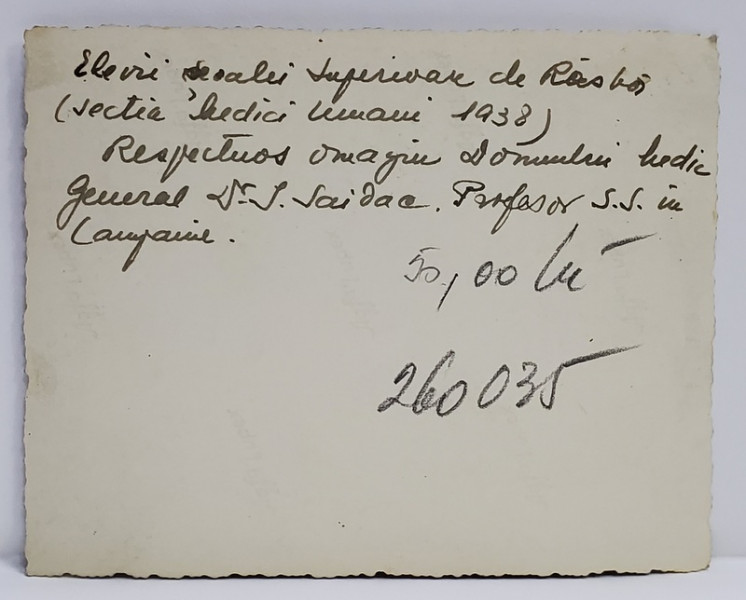 Elevii scoalei Superioare de Răsboi
(sectia Medici Umani 1938)
Respectuos omagiu Domnului Medic
General Dr. I. Saidac. Profesor S.S. în
Campanie.
50,00 lei
260035